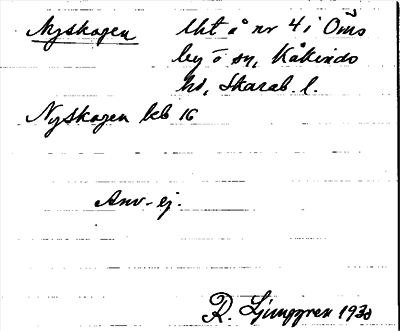 Nyskogen lht å nr 4 i Oms
by o sn, Kåkinds
hd, Skarab. l.
Nyskogen kb 16
Anv. ej.
R. Ljunggren 1930